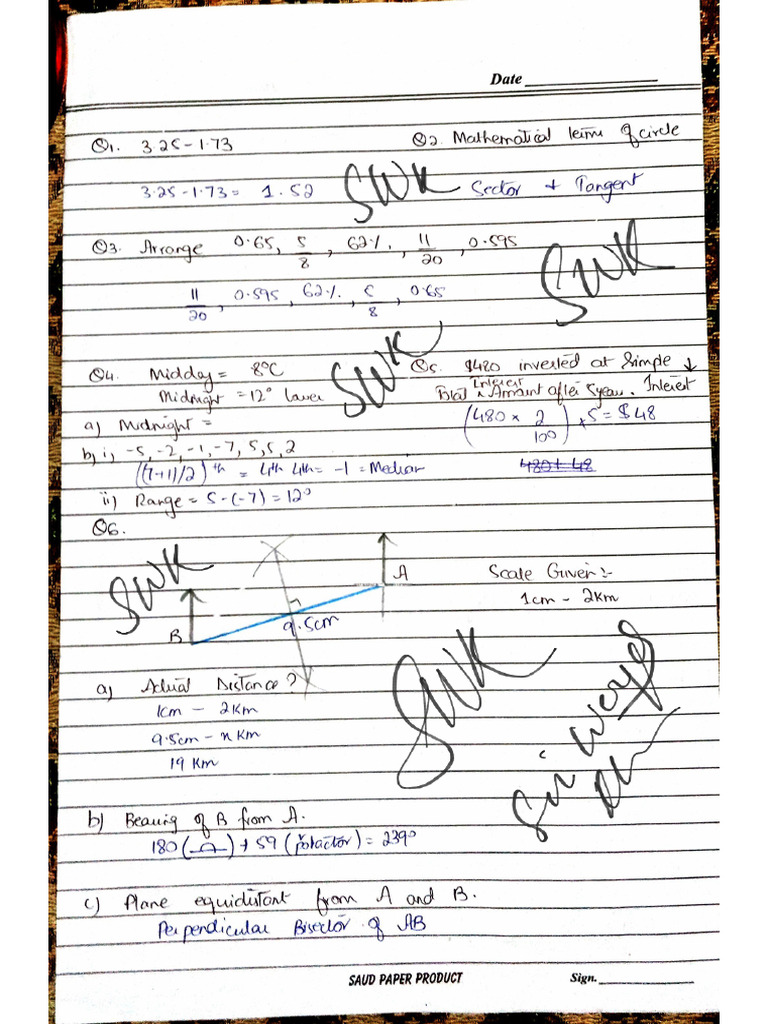 Date
Q1. 3.25-1.73 Q2. Mathematical term of circle
3.25-1.73 = 1.52 SWK Sector + Tangent
Q3. Arrange 0.65, 5/8, 62%, 11/20, 0.595
11/20, 0.595, 62%, 5/8, 0.65 SWK
Q4. Midday = 8°C SWK Q5. $480 inverted at Simple ↓
Midnight = 12° lower Total Interest Amount after 5year. Interest
a) Midnight = (480 × 2/100) × 5 = $48
b) i, -5, -2, -1, -7, 5, 5, 2
((7+1)/2)th = 4th 4th = -1 = Median 480+48
ii) Range = 5-(-7) = 12°
Q6.
SWK A Scale Given:-
1cm - 2km
B 9.5cm
a) Actual Distance? SWK
1cm - 2km
9.5cm - x km
19 Km
b) Bearing of B from A.
180 ( ) + 59 (protactor) = 239°
c) Plane equidistant from A and B.
Perpendicular Bisector of AB
SAUD PAPER PRODUCT Sign.